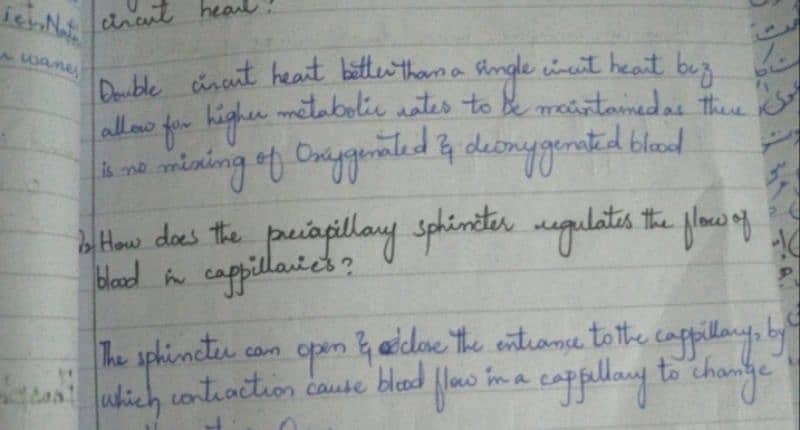 circuit heart?
Double circuit heart better than a single circuit heart bcz
allow for higher metabolic rates to be maintained as there
is no mixing of Oxygenated & deoxygenated blood
How does the precapillary sphincter regulates the flow of
blood in cappillaries?
The sphincter can open & close the entrance to the cappillary, by
which contraction cause blood flow in a cappillary to change